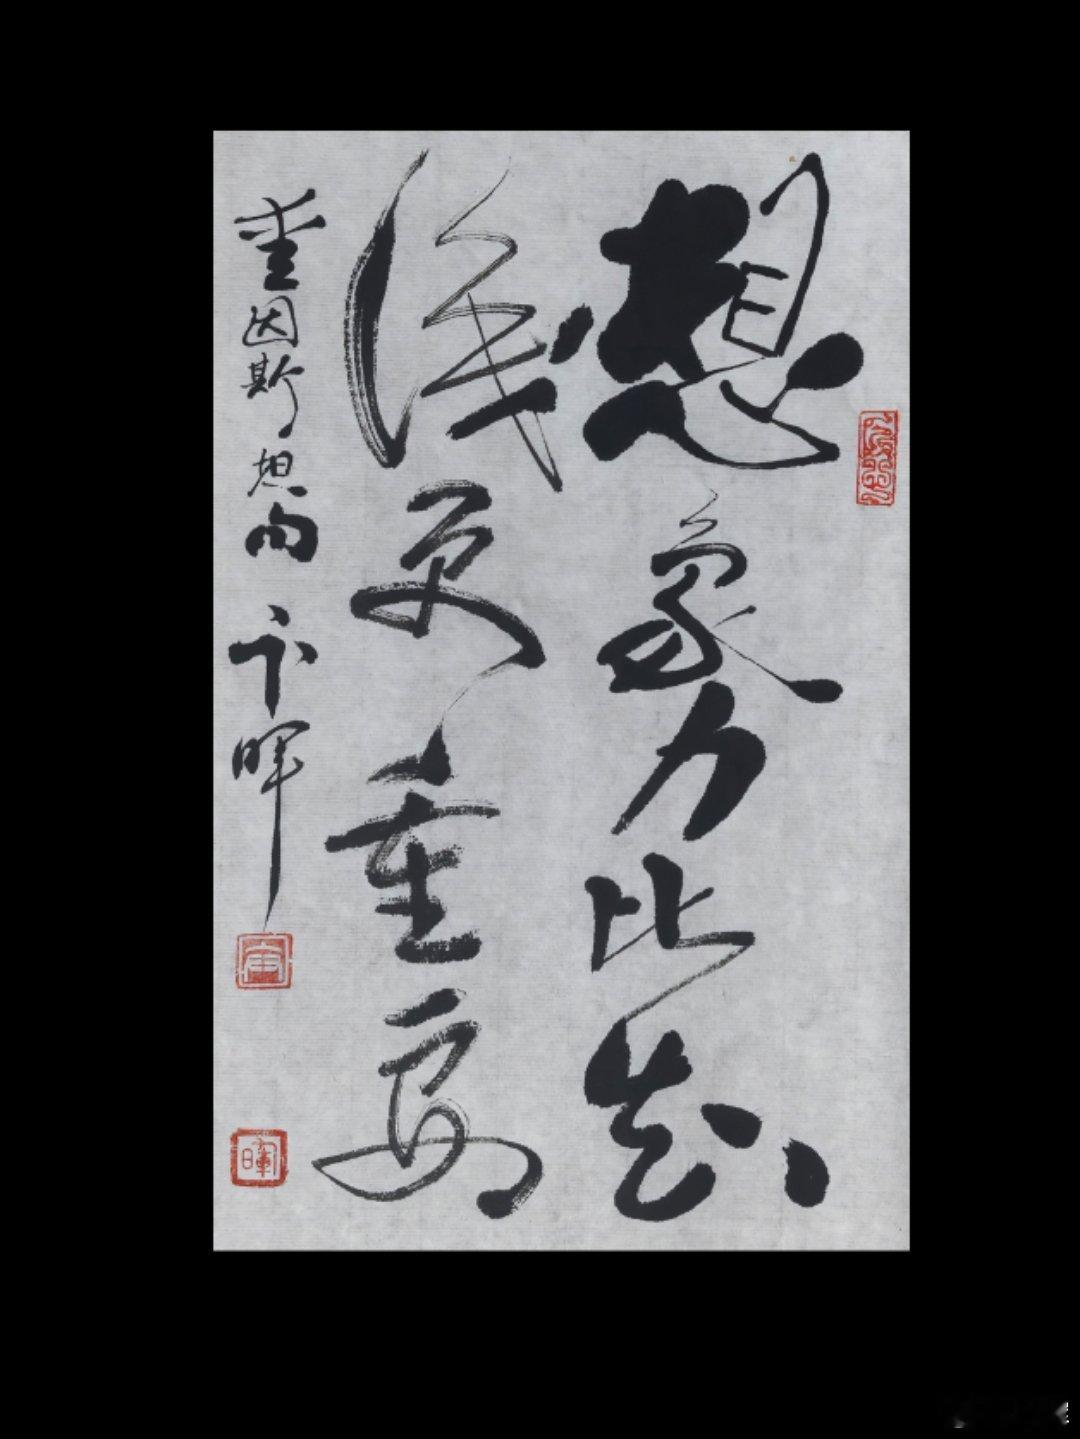 想象力比知
识更重要
爱因斯坦句 卞晖
暉